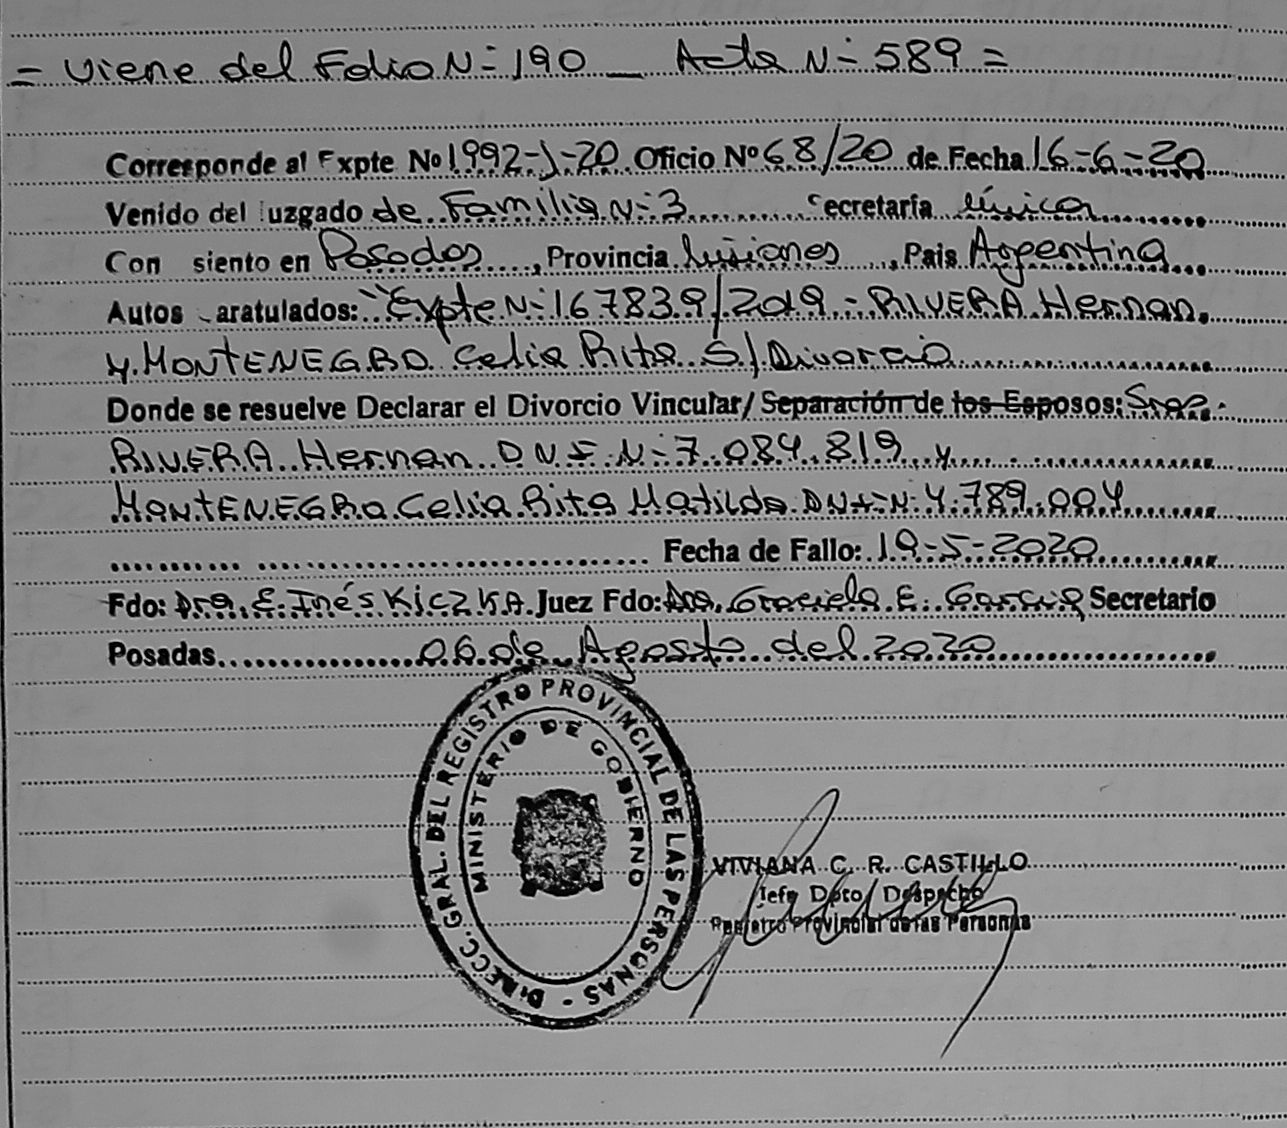 = Viene del Folio N-190 _ Acta N-589 =
Corresponde al Expte Nº 1992-J-20 Oficio Nº 68/20 de Fecha 16-6-20
Venido del Juzgado de Familia N-3 Secretaría única
Con siento en Posadas, Provincia Misiones, Pais Argentina
Autos aratulados: "Expte N-167839/2019 - RIVERA Hernan
y MONTENEGRO Celia Rita S/Divorcio
Donde se resuelve Declarar el Divorcio Vincular/ Separación de los Esposos: Sres.
RIVERA Hernan D N I N-7.084.819 y
MONTENEGRO Celia Rita Matilde DNI N-4.789.004
Fecha de Fallo: 19-5-2020
Fdo: Dra. E. Inés KICZKA Juez Fdo: Dra. Graciela E. Garcia Secretario
Posadas 06 de Agosto del 2020
DIRECC. GRAL. DEL REGISTRO PROVINCIAL DE LAS PERSONAS -
MINISTERIO DE GOBIERNO
VIVIANA C. R. CASTILLO
Jefe Dpto. Despacho
Registro Provincial de las Personas